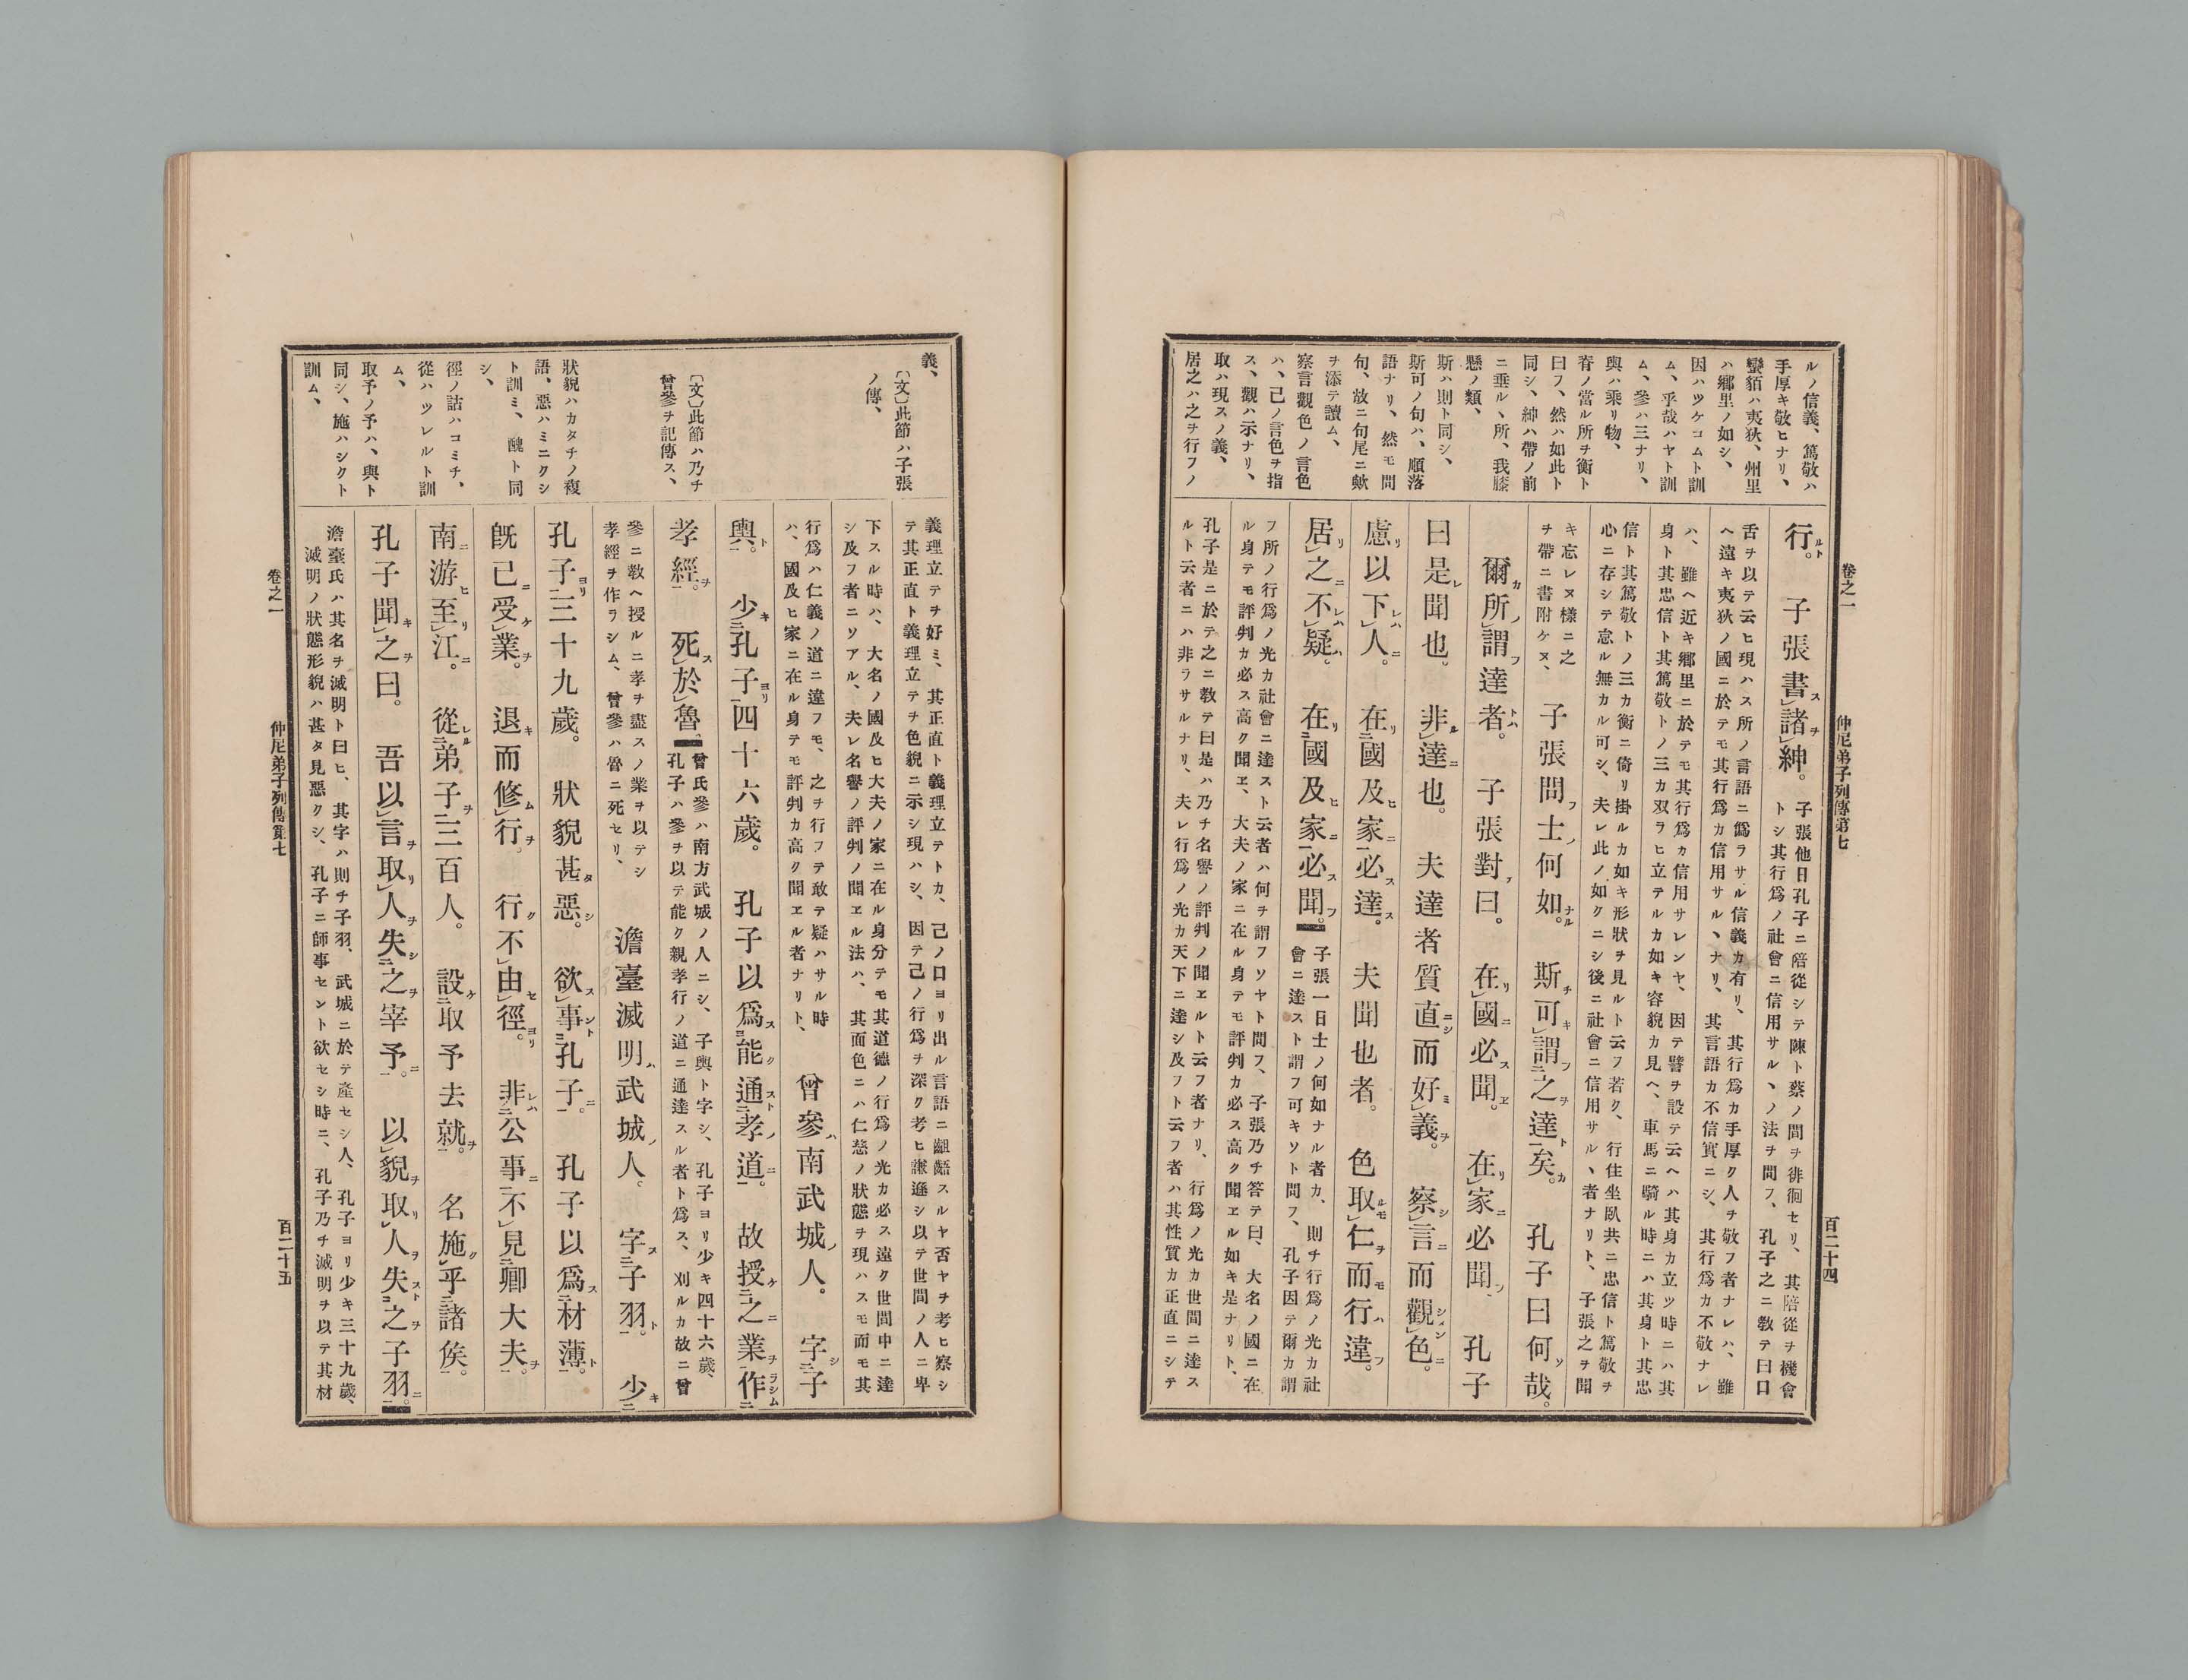 卷之一
仲尼弟子列傳第七
百二十四
ルノ信義、篤敬ハ
手厚キ敬ヒナリ、
蠻貊ハ夷狄、州里
ハ鄕里ノ如シ、
因ハツケコムト訓
ム、乎哉ハヤト訓
ム、參ハ三ナリ、
輿ハ乘リ物、
脊ノ當ル所チ衡ト
曰フ、然ハ如此ト
同シ、紳ハ帶ノ前
ニ垂ルヽ所、我膝
懸ノ類、
斯ハ則ト同シ、
斯可ノ句ハ、順落
語ナリ、然モ問
句、故ニ句尾ニ歟
チ添テ讀ム、
察言觀色ノ言色
ハ、己ノ言色チ指
ス、觀ハ示ナリ、
取ハ現スノ義、
居之ハ之チ行フノ
行ルト。　子張書スレ諸ヲレ紳。子張他日孔子ニ陪從シテ陳ト蔡ノ間チ徘徊セリ、其陪從チ機會
トシ其行爲ノ社會ニ信用サルヽノ法チ問フ、孔子之ニ敎テ曰口
舌チ以テ云ヒ現ハス所ノ言語ニ僞ラサル信義カ有リ、其行爲カ手厚ク人チ敬フ者ナレハ、雖
ヘ遠キ夷狄ノ國ニ於テモ其行爲カ信用サルヽナリ、其言語カ不信實ニシ、其行爲カ不敬ナレ
ハ、雖ヘ近キ鄕里ニ於テモ其行爲カ信用サレンヤ、因テ譬チ設テ云ヘハ其身カ立ツ時ニハ其
身ト其忠信ト其篤敬トノ三カ双ラヒ立テルカ如キ容貌カ見ヘ、車馬ニ騎ル時ニハ其身ト其忠
信ト其篤敬トノ三カ衡ニ倚リ掛ルカ如キ形狀チ見ルト云フ若ク、行住坐臥共ニ忠信ト篤敬チ
心ニ存シテ怠ル無カル可シ、夫レ此ノ如クニシ後ニ社會ニ信用サルヽ者ナリト、子張之チ聞
キ忘レヌ樣ニ之
チ帶ニ書附ケヌ、　子張問フ士ノ何如ナル。　斯チ可キレ謂フ二之ヲ達ト一矣カ。　孔子曰何ソ哉。
爾カ所ノレ謂フ達者トハ。　子張對ァ曰。　在リレ國ニ必ス聞ヱ。　在リレ家ニ必聞フ、　孔子
曰是レ聞也。　非ルレ達ニ也。　夫達者質直ニシ而好ミレ義ヲ。　察シレ言ニ而觀シメンレ色ニ。
慮リ以下レハレ人ニ。　在リ二國及ヒ家ニ一必ス達ス。　夫聞也者。　色取ルモレ仁ヲ而モ行ハ違フ。
居リレ之ニ不レハレ疑ハ。　在リ二國及ヒ家ニ一必ス聞フ。子張一日士ノ何如ナル者カ、則チ行爲ノ光カ社
會ニ達スト謂フ可キソト問フ、孔子因テ爾カ謂
フ所ノ行爲ノ光カ社會ニ達スト云者ハ何チ謂フソヤト問フ、子張乃チ答テ曰、大名ノ國ニ在
ル身テモ評判カ必ス高ク聞ヱ、大夫ノ家ニ在ル身テモ評判カ必ス高ク聞ヱル如キ是ナリト、
孔子是ニ於テ之ニ敎テ曰是ハ乃チ名譽ノ評判ノ聞ヱルト云フ者ナリ、行爲ノ光カ世間ニ達ス
ルト云者ニハ非ラサルナリ、夫レ行爲ノ光カ天下ニ達シ及フト云フ者ハ其性質カ正直ニシテ
義、
〔文〕此節ハ子張
ノ傳、
〔文〕此節ハ乃チ
曾參チ記傳ス、
狀貌ハカタチノ複
語、惡ハミニクシ
ト訓ミ、醜ト同
シ、
徑ノ詁ハコミチ、
從ハツレルト訓
ム、
取予ノ予ハ、與ト
同シ、施ハシクト
訓ム、
義理立テチ好ミ、其正直ト義理立テトカ、己ノ口ヨリ出ル言語ニ齟齬スルヤ否ヤチ考ヒ察シ
テ其正直ト義理立テチ色貌ニ示シ現ハシ、因テ己ノ行爲チ深ク考ヒ謙遜シ以テ世間ノ人ニ卑
下スル時ハ、大名ノ國及ヒ大夫ノ家ニ在ル身分テモ其道德ノ行爲ノ光カ必ス遠ク世間中ニ達
シ及フ者ニソアル、夫レ名譽ノ評判ノ聞ヱル法ハ、其面色ニハ仁慈ノ狀態チ現ハスモ而モ其
行爲ハ仁義ノ道ニ違フモ、之チ行フテ敢テ疑ハサル時
ハ、國及ヒ家ニ在ル身テモ評判カ高ク聞ヱル者ナリト、　曾參ハ南武城ノ人。　字シ二子
輿ト一。　少キ二孔子ヨリ一四十六歲。　孔子以爲スヨ能ク通スト二孝ノ道ニ一。　故授ケ二之ニ業ヲ一作ラシム二
孝經ヲ一。　死スレ於レ魯曾氏參ハ南方武城ノ人ニシ、子輿ト字シ、孔子ヨリ少キ四十六歲、
孔子ハ參チ以テ能ク親孝行ノ道ニ通達スル者ト爲ス、刈ルカ故ニ曾
參ニ敎ヘ授ルニ孝チ盡スノ業チ以テシ
孝經チ作ラシム、曾參ハ魯ニ死セリ、　澹臺滅明ハ武城ノ人。　字ス二子羽ト一。　少キ二
孔子ヨリ一三十九歲。　狀貌甚タ惡シ。　欲スレ事ントヨ孔子ニ一。　孔子以爲ス二材薄ト一。
旣已ニ受ケレ業ヲ。　退キ而修ムレ行ヲ。　行ク不レ由セレ徑ヨリ。　非レハ二公事ニ一不レ見二卿大夫ヲ一。
南ニ游ヒ至リレ江ニ。　從レル二弟子ヲ一三百人。　設ケ二取予去就ヲ一。　名施クレ乎二諸侯一。
孔子聞キレ之ヲ曰。　吾以レ言ヲ取リレ人ヲ失シ二之ヲ宰予ニ一。　以レ貌ヲ取リレ人ヲ失ストヨ之ヲ子羽ニ一。
澹臺氏ハ其名チ滅明ト曰ヒ、其字ハ則チ子羽、武城ニ於テ產セシ人、孔子ヨリ少キ三十九歲、
滅明ノ狀態形貌ハ甚タ見惡クシ、孔子ニ師事セント欲セシ時ニ、孔子乃チ滅明チ以テ其材
卷之一
仲尼弟子列傳第七
百二十五